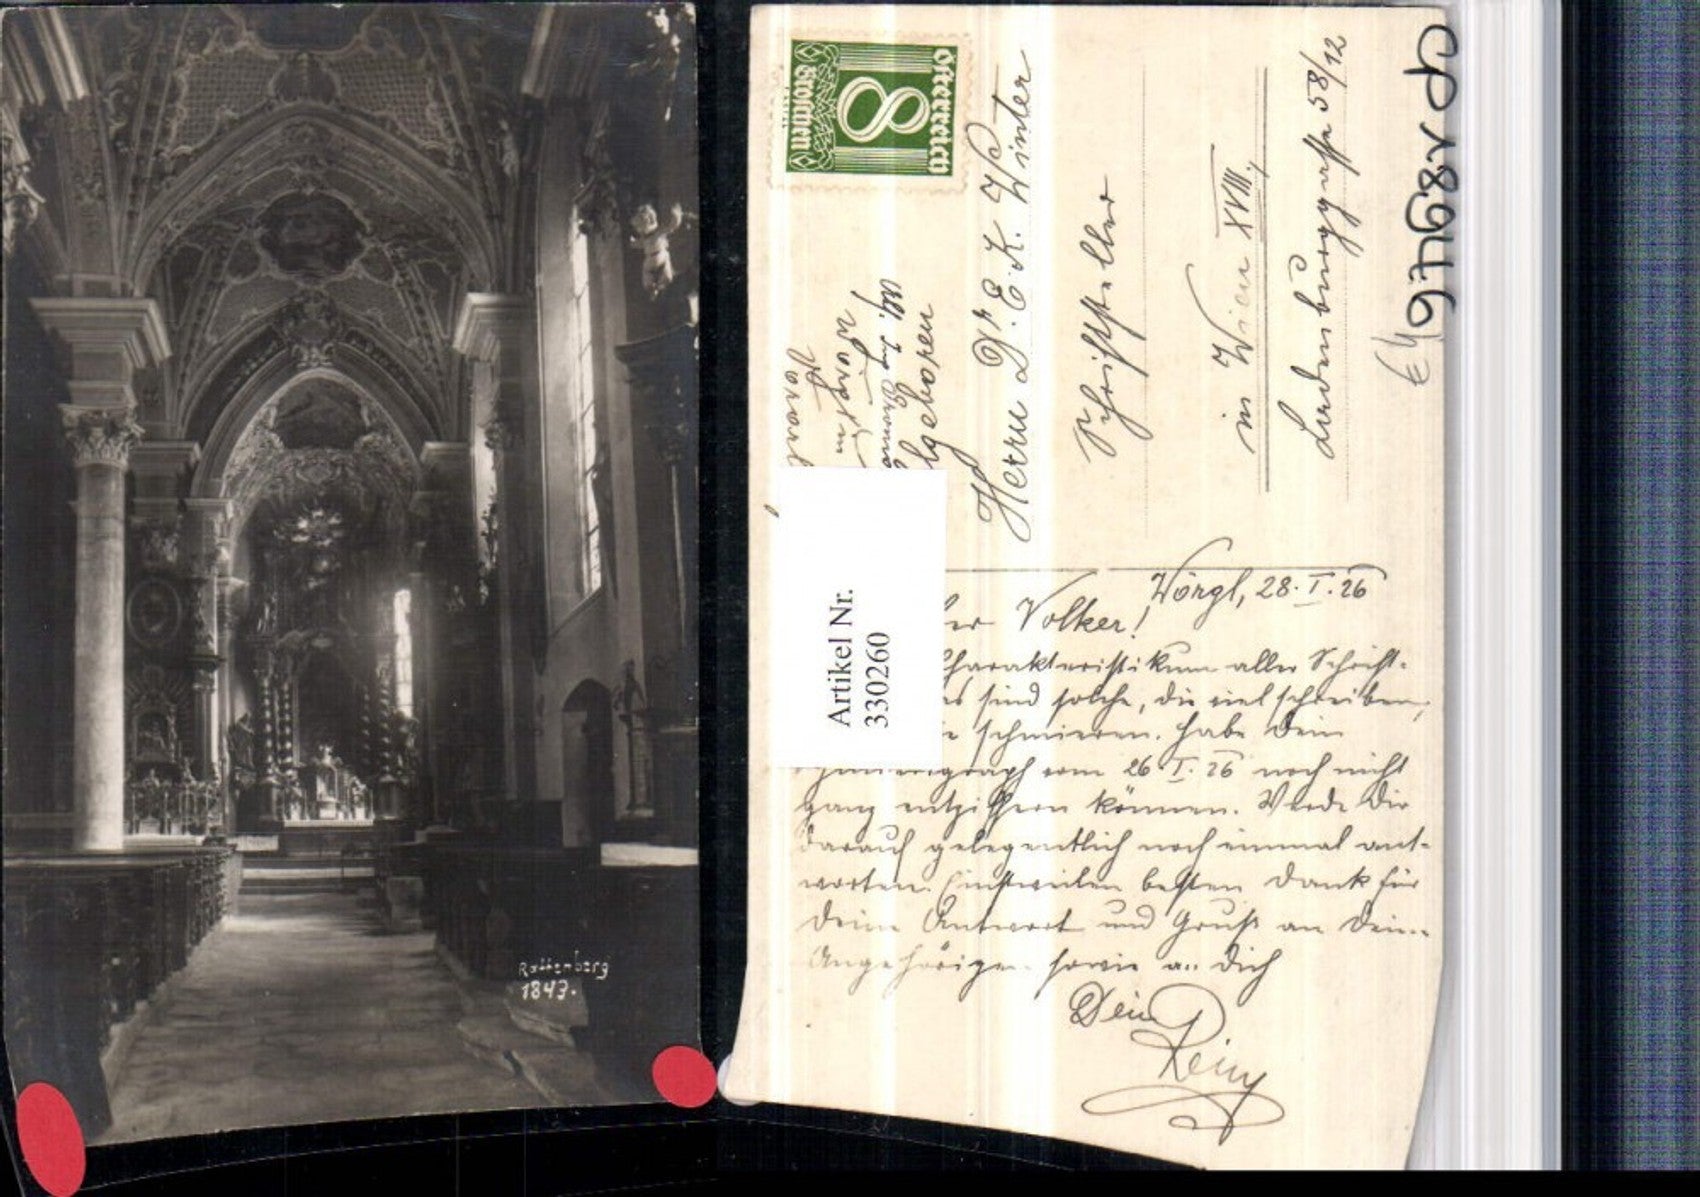 Rattenberg
1843.
Österreich
8
Groschen
Herrn Dr. E. K. Winter
Schriftsteller
in Wien XVIII.,
58/12
Artikel Nr.
330260
Wörgl, 28. I. 26
er Volker!
Charakteristikum aller Schrift-
sind solche, die viel schreiben,
schmieren. Habe Dein
vom 26. I. 26 noch nicht
ganz entziffern können. Werde Dir
darauf gelegentlich noch einmal ant-
worten. Einstweilen besten Dank für
Deine Antwort und Gruß an Deine
Angehörigen sowie an Dich
Dein